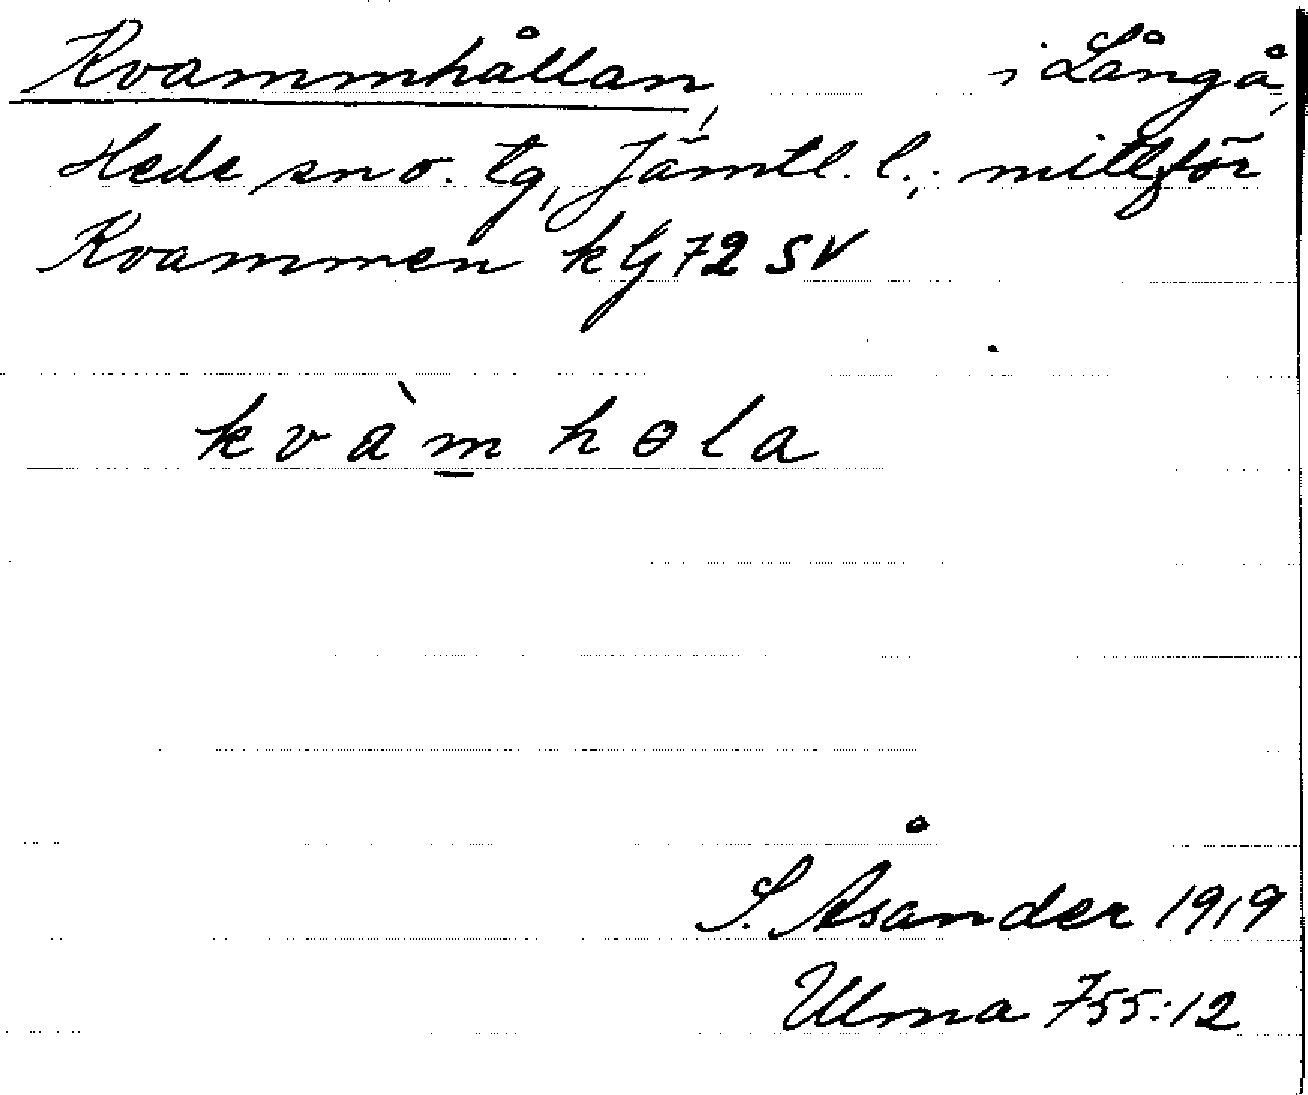 Kvammhållan, i Långå,
Hede sn o. tg, Jämtl. l., mittför
Kvammen k G 72 SV
kvàm̲hɵla
S. Åsander 1919
Ulma 755:12